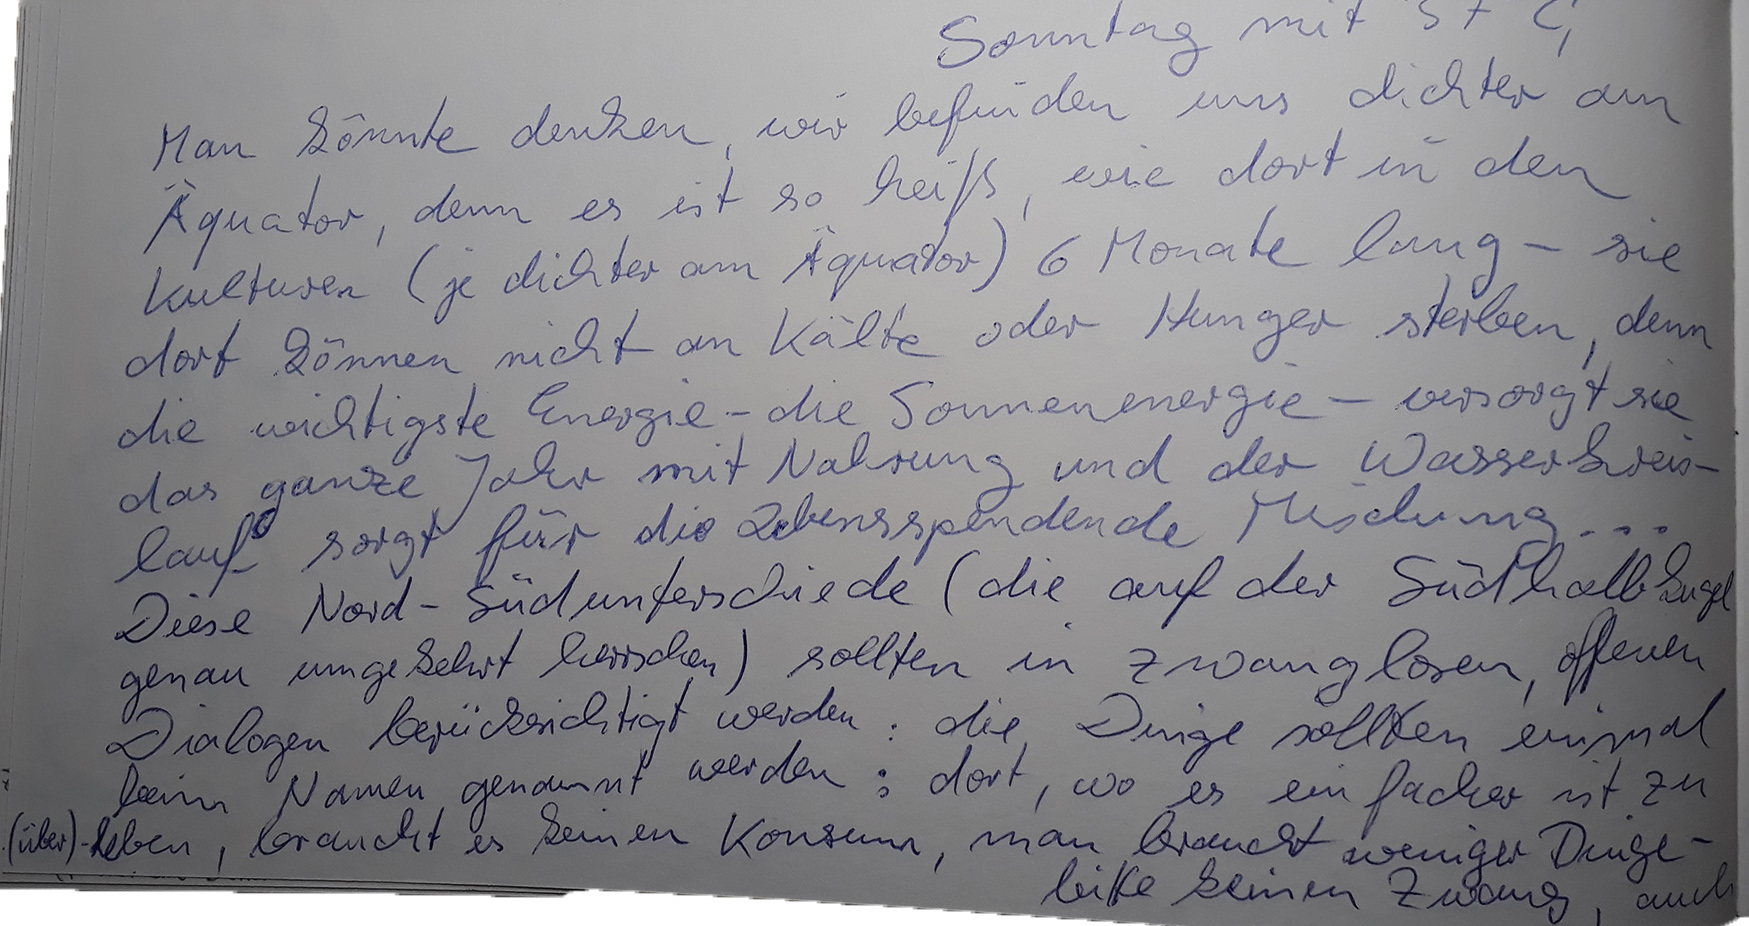 Sonntag mit 37°C,
Man könnte denken, wir befinden uns dichter am
Äquator, denn es ist so heiß, wie dort in den
Kulturen (je dichter am Äquator) 6 Monate lang – sie
dort können nicht an Kälte oder Hunger sterben, denn
die wichtigste Energie – die Sonnenenergie – versorgt sie
das ganze Jahr mit Nahrung und der Wasserkreis-
lauf sorgt für die lebensspendende Mischung...
Diese Nord-Südunterschiede (die auf der Südhalbkugel
genau umgekehrt herrschen) sollten in zwanglosen, offenen
Dialogen berücksichtigt werden: die Dinge sollten einmal
beim Namen genannt werden: dort, wo es einfacher ist zu
(über)-leben, braucht es keinen Konsum, man braucht weniger Dinge –
bitte keinen Zwang, auch